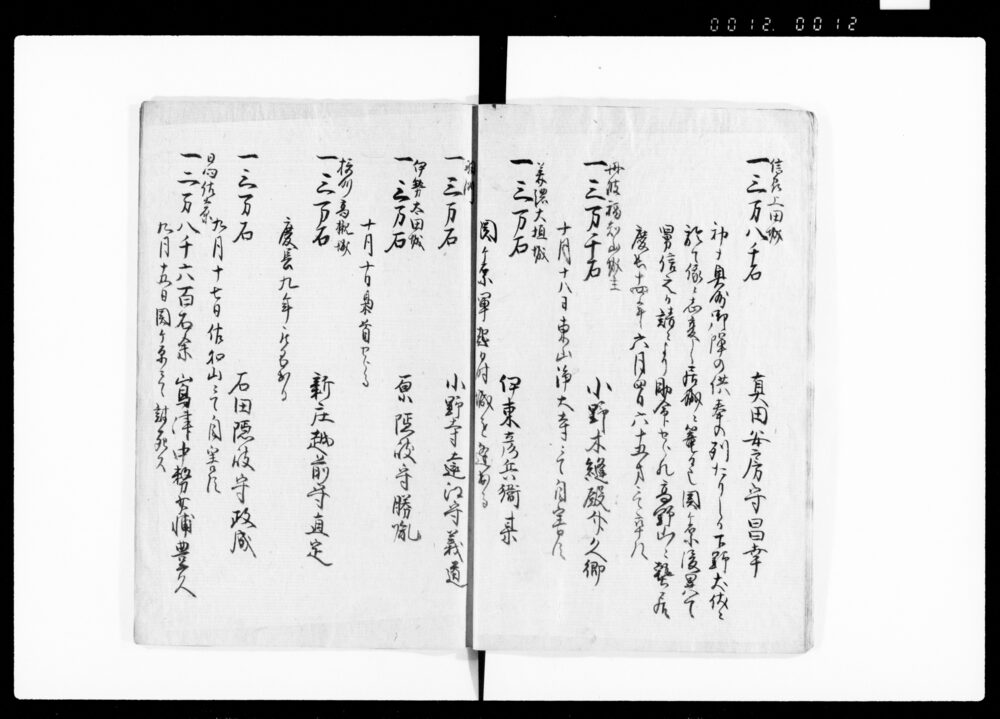 0012. 0012
信州上田城
一三万八千石 真田安房守昌幸
初ハ 御陣の供奉の列たりしか下野犬伏ニ
於て 志変し居城ニ篭もる関ヶ原後 て
男信之 請により助命せられ高野山ニ蟄居
慶長十四年六月四日六十五才ニて卒ス
丹波福知山城主
一三万千石 小野木縫殿介久郷
十月十八日東山浄大寺ニて自害ス
美濃大垣城
一三万石 伊東彦兵衛
関ヶ原軍 城を
羽州
一三万石 小野寺遠江守義道
伊勢太田城
一三万石 原隠岐守勝胤
十月十日梟首せらる
摂州高槻城
一三万石 新庄越前守直定
慶長九年
一三万石 石田隠岐守政成
九月十七日佐和山ニて自害ス
日向佐土原
一二万八千六百石余 嶌津中務少輔豊久
九月十五日関ヶ原ニて討死ス